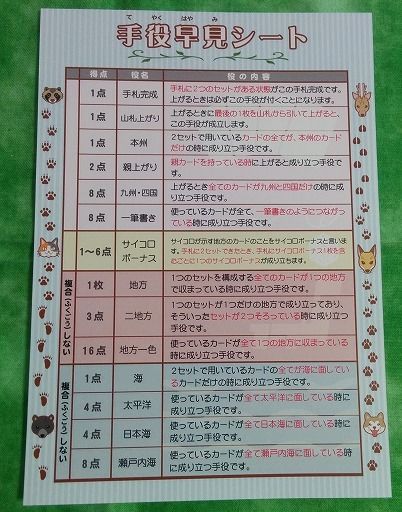 て やく はや み
手役早見シート
得点 役名 役の内容
1点 手札完成 手札に2つのセットがある状態がこの手札完成です。
上がるときは必ずこの手役が付くことになります。
1点 山札上がり 上がるときに最後の1枚を山札から引いて上がると、
この手役が成立します。
1点 本州 2セットで用いているカードの全てが、本州のカード
だけの時に成り立つ手役です。
2点 親上がり 親カードを持っている時に上がると成り立つ手役で
す。
8点 九州・四国 上がるとき全てのカードが九州と四国だけの時に成
り立つ手役です。
8点 一筆書き 使っているカードが全て、一筆書きのようにつながっ
ている時に成り立つ手役です。
1〜6点 サイコロ
ボーナス
サイコロが示す地方のカードのことをサイコロボーナスと言います。
手札に2セットできたとき、手札にサイコロボーナス1枚を含
むごとに1つのサイコロボーナスが成り立ちます。
複合(ふくごう)しない
1枚 地方 1つのセットを構成する全てのカードが1つの地方
で収まっている時に成り立つ手役です。
3点 二地方 1つのセットが1つだけの地方で成り立っており、
そういったセットが2つそろっている時に成り立つ
手役です。
16点 地方一色 使っているカードが全て1つの地方に収まっている
時に成り立つ手役です。
複合(ふくごう)しない
1点 海 2セットで用いているカードの全てが海に面してい
るカードだけの時に成り立つ手役です。
4点 太平洋 使っているカードが全て太平洋に面している時に
成り立つ手役です。
4点 日本海 使っているカードが全て日本海に面している時に
成り立つ手役です。
8点 瀬戸内海 使っているカードが全て瀬戸内海に面している時
に成り立つ手役です。